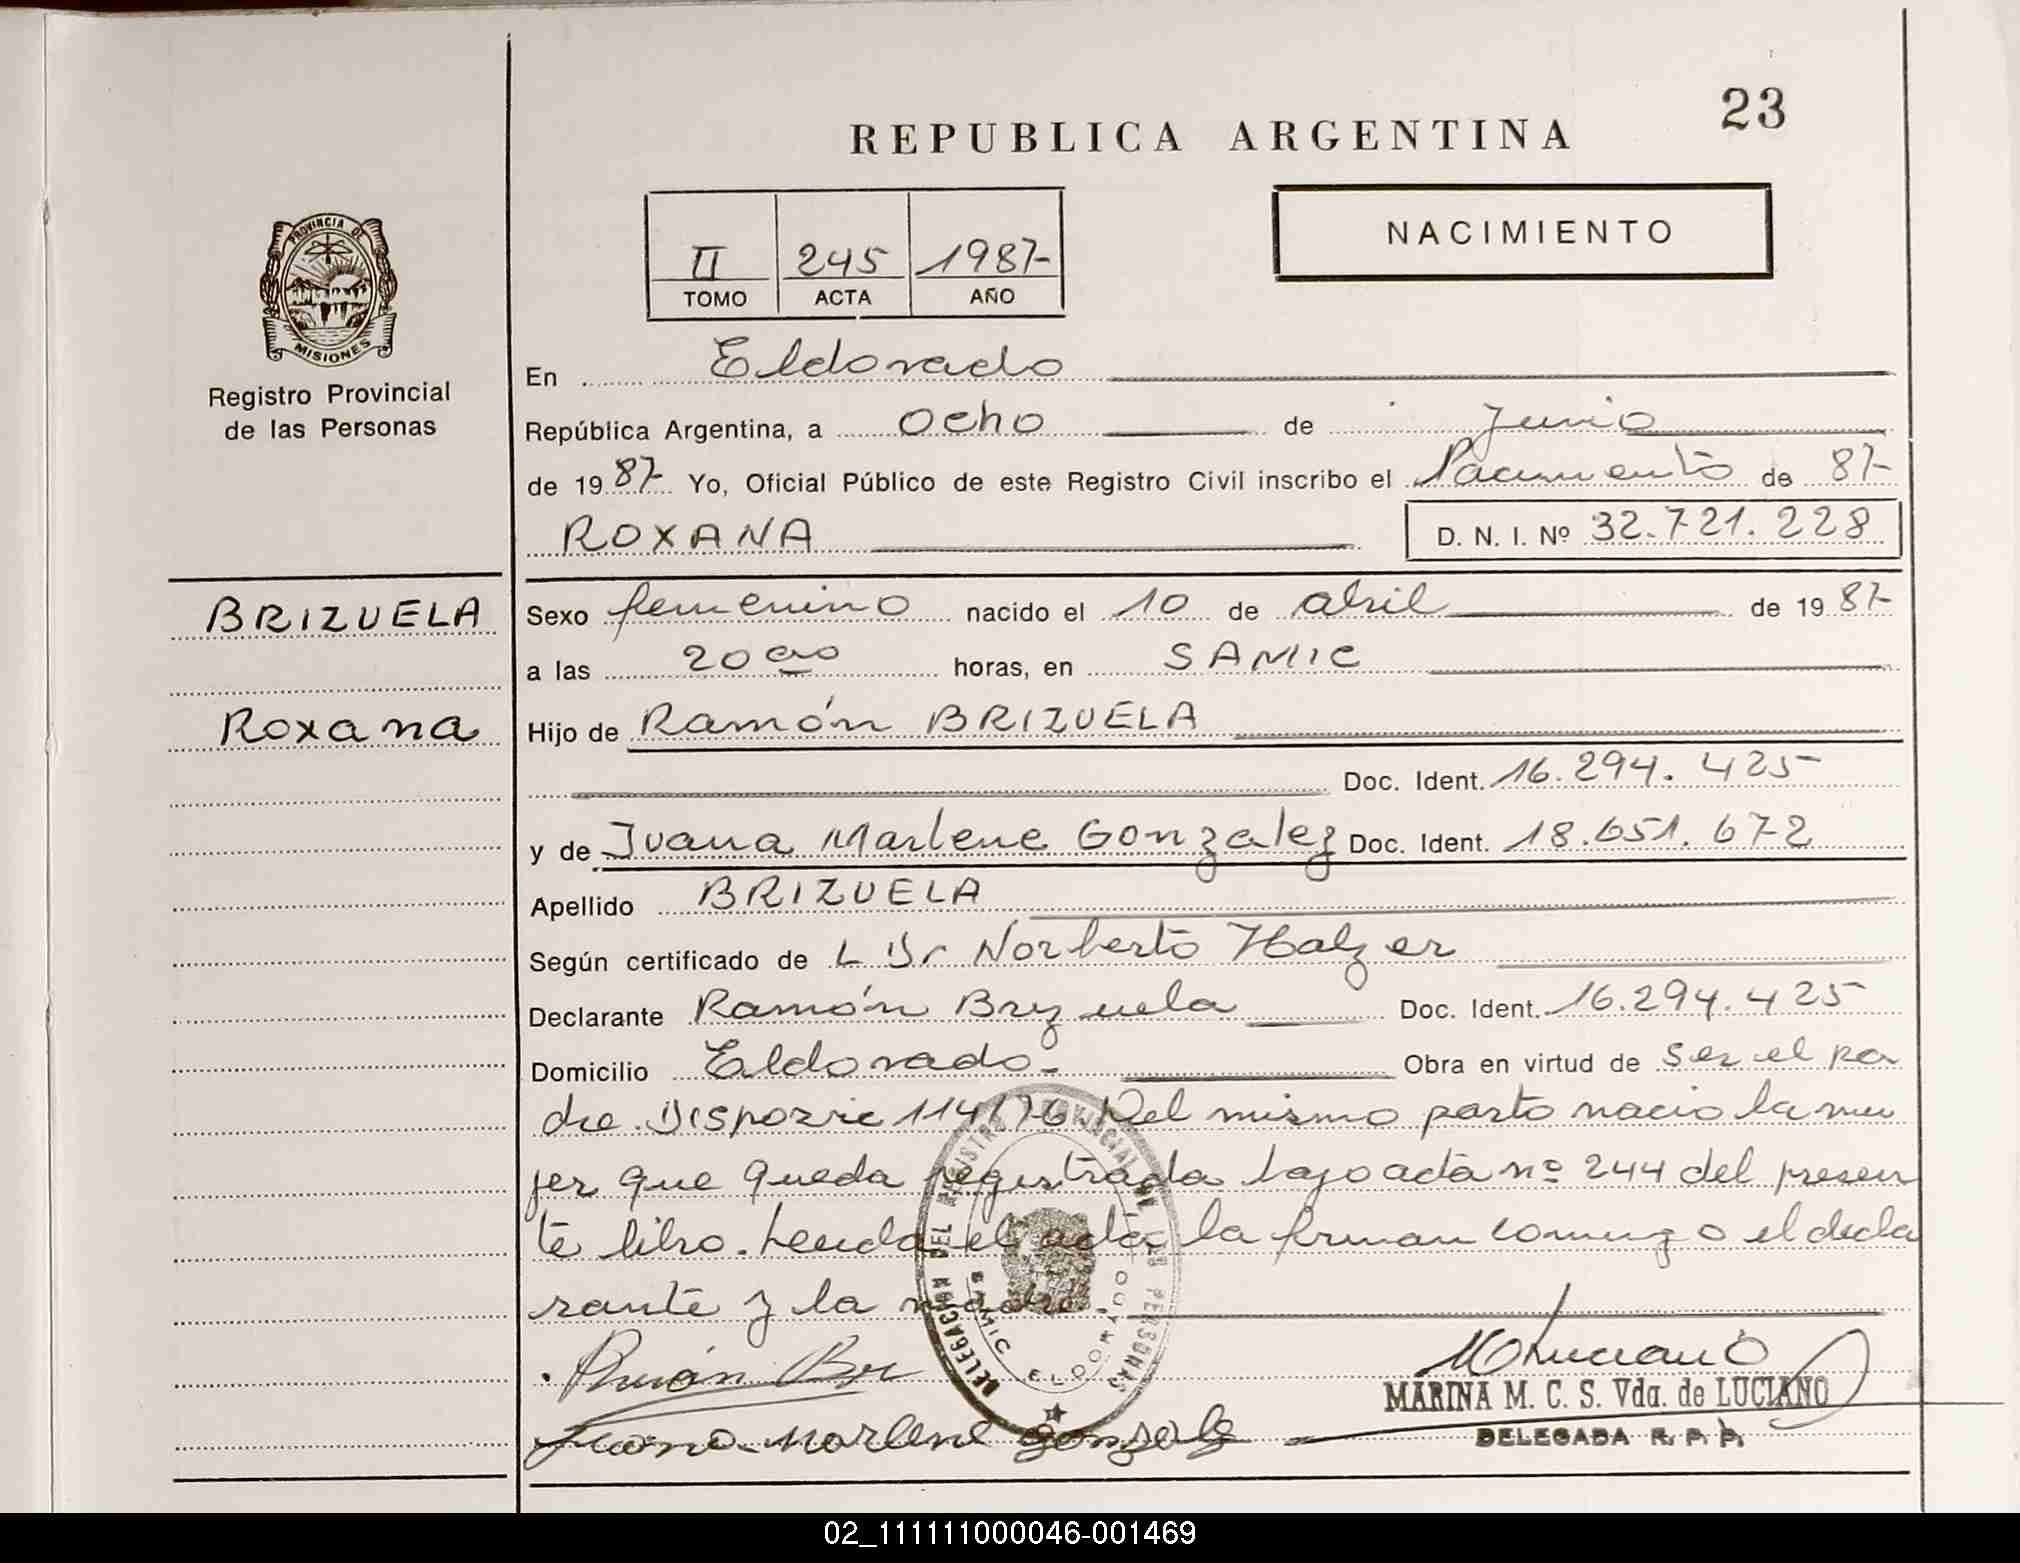 23
REPUBLICA ARGENTINA
II 245 1987-
TOMO ACTA AÑO
NACIMIENTO
PROVINCIA DE
MISIONES
Registro Provincial
de las Personas
En Eldorado
República Argentina, a Ocho de Junio
de 1987- Yo, Oficial Público de este Registro Civil inscribo el Nacimiento de 87-
ROXANA D. N. I. Nº 32.721.228
BRIZUELA
Roxana
Sexo femenino nacido el 10 de abril de 1987-
a las 20 horas, en SAMIC
Hijo de Ramón BRIZUELA
Doc. Ident. 16.294.425
y de Juana Marlene Gonzalez Doc. Ident. 18.651.672
Apellido BRIZUELA
Según certificado de L Dr Norberto Halzer
Declarante Ramón Bryzuela Doc. Ident. 16.294.425
Domicilio Eldorado- Obra en virtud de ser el pa
dre. 114/76 Del mismo parto nacio la mu
jer que queda registrada bajo acta nº 244 del presen
te libro. Leida el acta, la firman conmigo el decla
rante y la madre.
DELEGACION DEL REGISTRO PROVINCIAL DE LAS PERSONAS
SAMIC ELDORADO
Ramón Br
Juana Marlene Gonzalez
MLuciano
MARINA M. C. S. Vda. de LUCIANO
DELEGADA R. P. P.
02_111111000046-001469